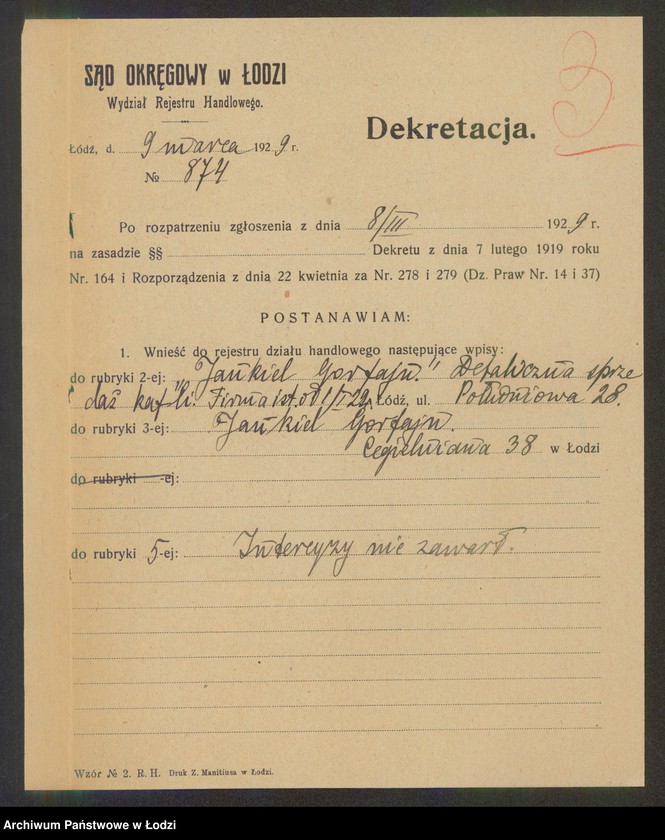 SĄD OKRĘGOWY w ŁODZI
Wydział Rejestru Handlowego.
3
Dekretacja.
Łódź, d. 9 marca 1929 r.
№ 874
Po rozpatrzeniu zgłoszenia z dnia 8/III 1929 r.
na zasadzie §§ Dekretu z dnia 7 lutego 1919 roku
Nr. 164 i Rozporządzenia z dnia 22 kwietnia za Nr. 278 i 279 (Dz. Praw Nr. 14 i 37)
POSTANAWIAM:
1. Wnieść do rejestru działu handlowego następujące wpisy:
do rubryki 2-ej: "Jankiel Gorfajn." Detaliczna sprze
daż kafli. Firma ist. od 1/I 29. Łódź, ul. Południowa 28.
do rubryki 3-ej: Jankiel Gorfajn.
Cegielniana 38 w Łodzi
do rubryki -ej:
do rubryki 5-ej: Intercyzy nie zawarł.
Wzór № 2. R. H. Druk Z. Manitiusa w Łodzi.
Archiwum Państwowe w Łodzi